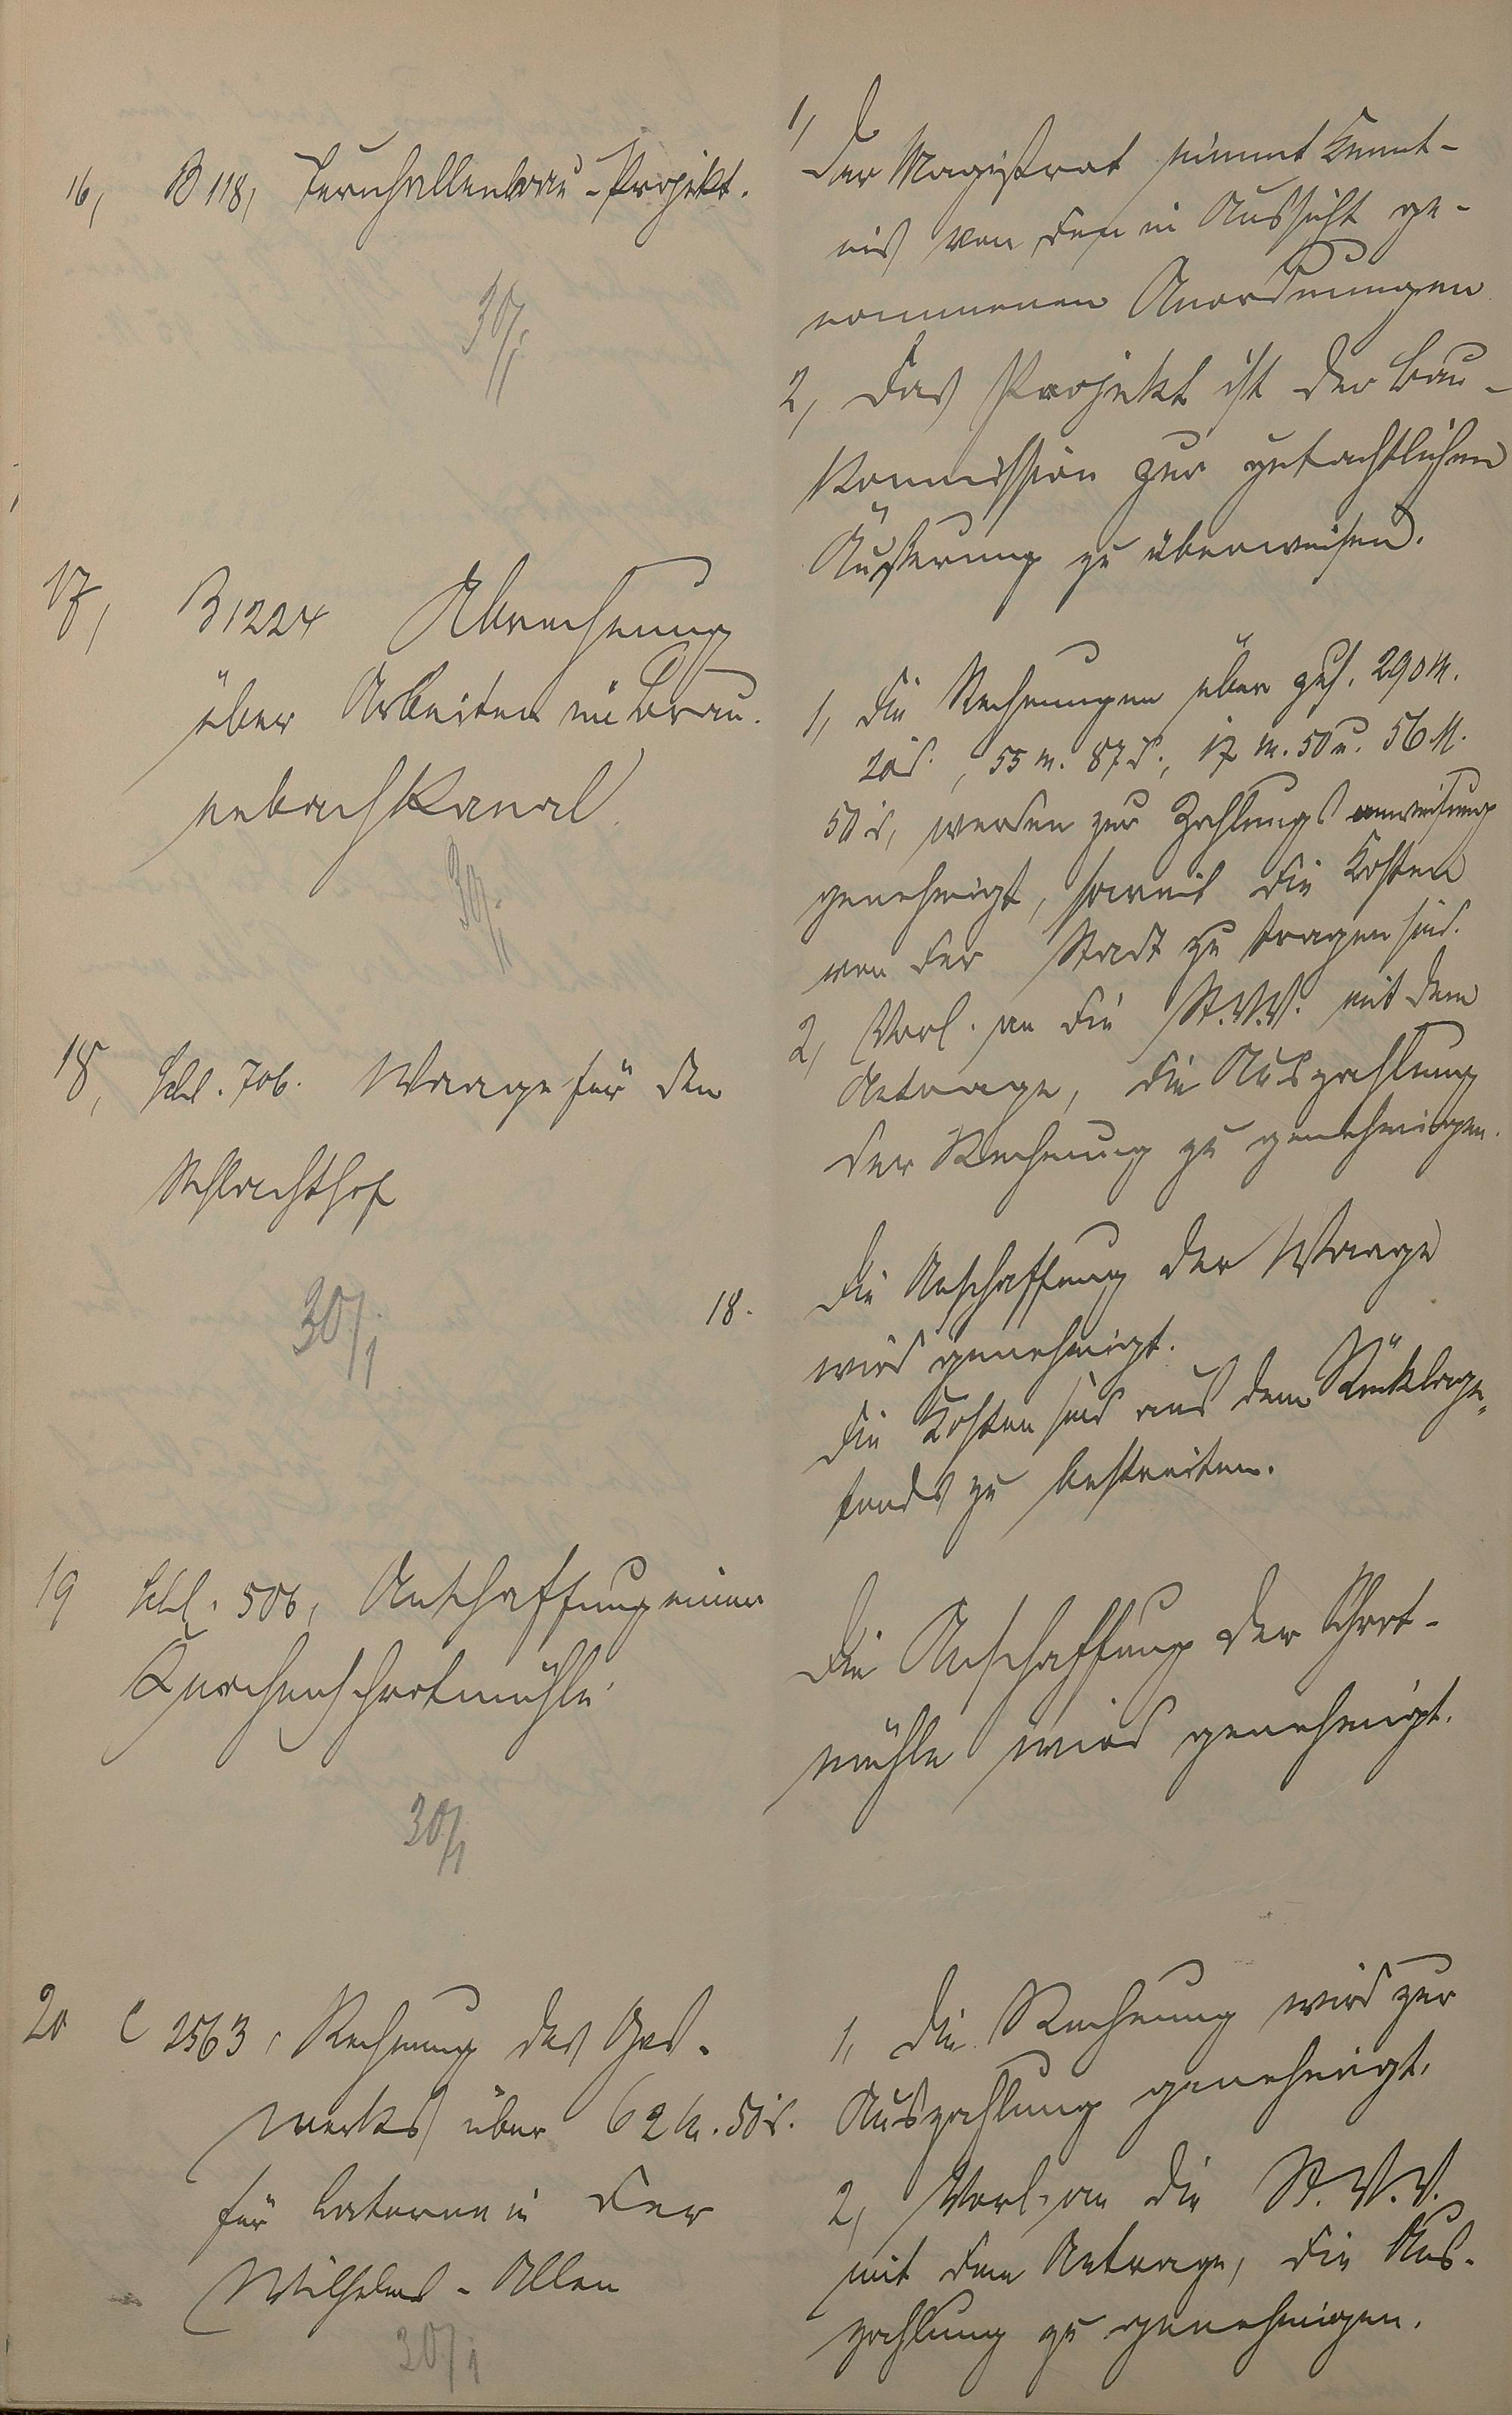 16, B 118, Turnhallenbau-Projekt.
30/1
1, Der Magistrat nimmt Kennt-
nis von den in Aussicht ge-
nommenen Anordnungen
2, Das Projekt ist der Bau-
kommission zur gutachtlichen
Äußerung zu überweisen.
17, B 1224 Abrechnung
über Arbeiten im Brau-
nebachkanal
30/1
1, Die Rechnungen über zus. 290 M.
20 d., 55 M. 87 d., 17 M. 50 u. 56 M.
50 d, werden zur Zahlungsanweisung
genehmigt, soweit die Kosten
von der Stadt zu tragen sind.
2, Vorl. an die St.V.V. mit dem
Antrage, die Auszahlung
der Rechnung zu genehmigen.
18, Schl. 706. Waage für den
Schlachthof
30/1
18. Die Anschaffung der Waage
wird genehmigt.
Die Kosten sind aus dem Rücklage-
fonds zu bestreiten.
19 Schl. 506, Anschaffung einer
Knochenschrotmühle
30/1
Die Anschaffung der Schrot-
mühle wird genehmigt.
20 C 2563, Rechnung des Gas-
werks über 62 M. 50 d.
für Laternen in der
Wilhelms-Allee
30/1
1, Die Rechnung wird zur
Auszahlung genehmigt.
2, Vorl. an die St.V.V.
mit dem Antrage, die Aus-
zahlung zu genehmigen.